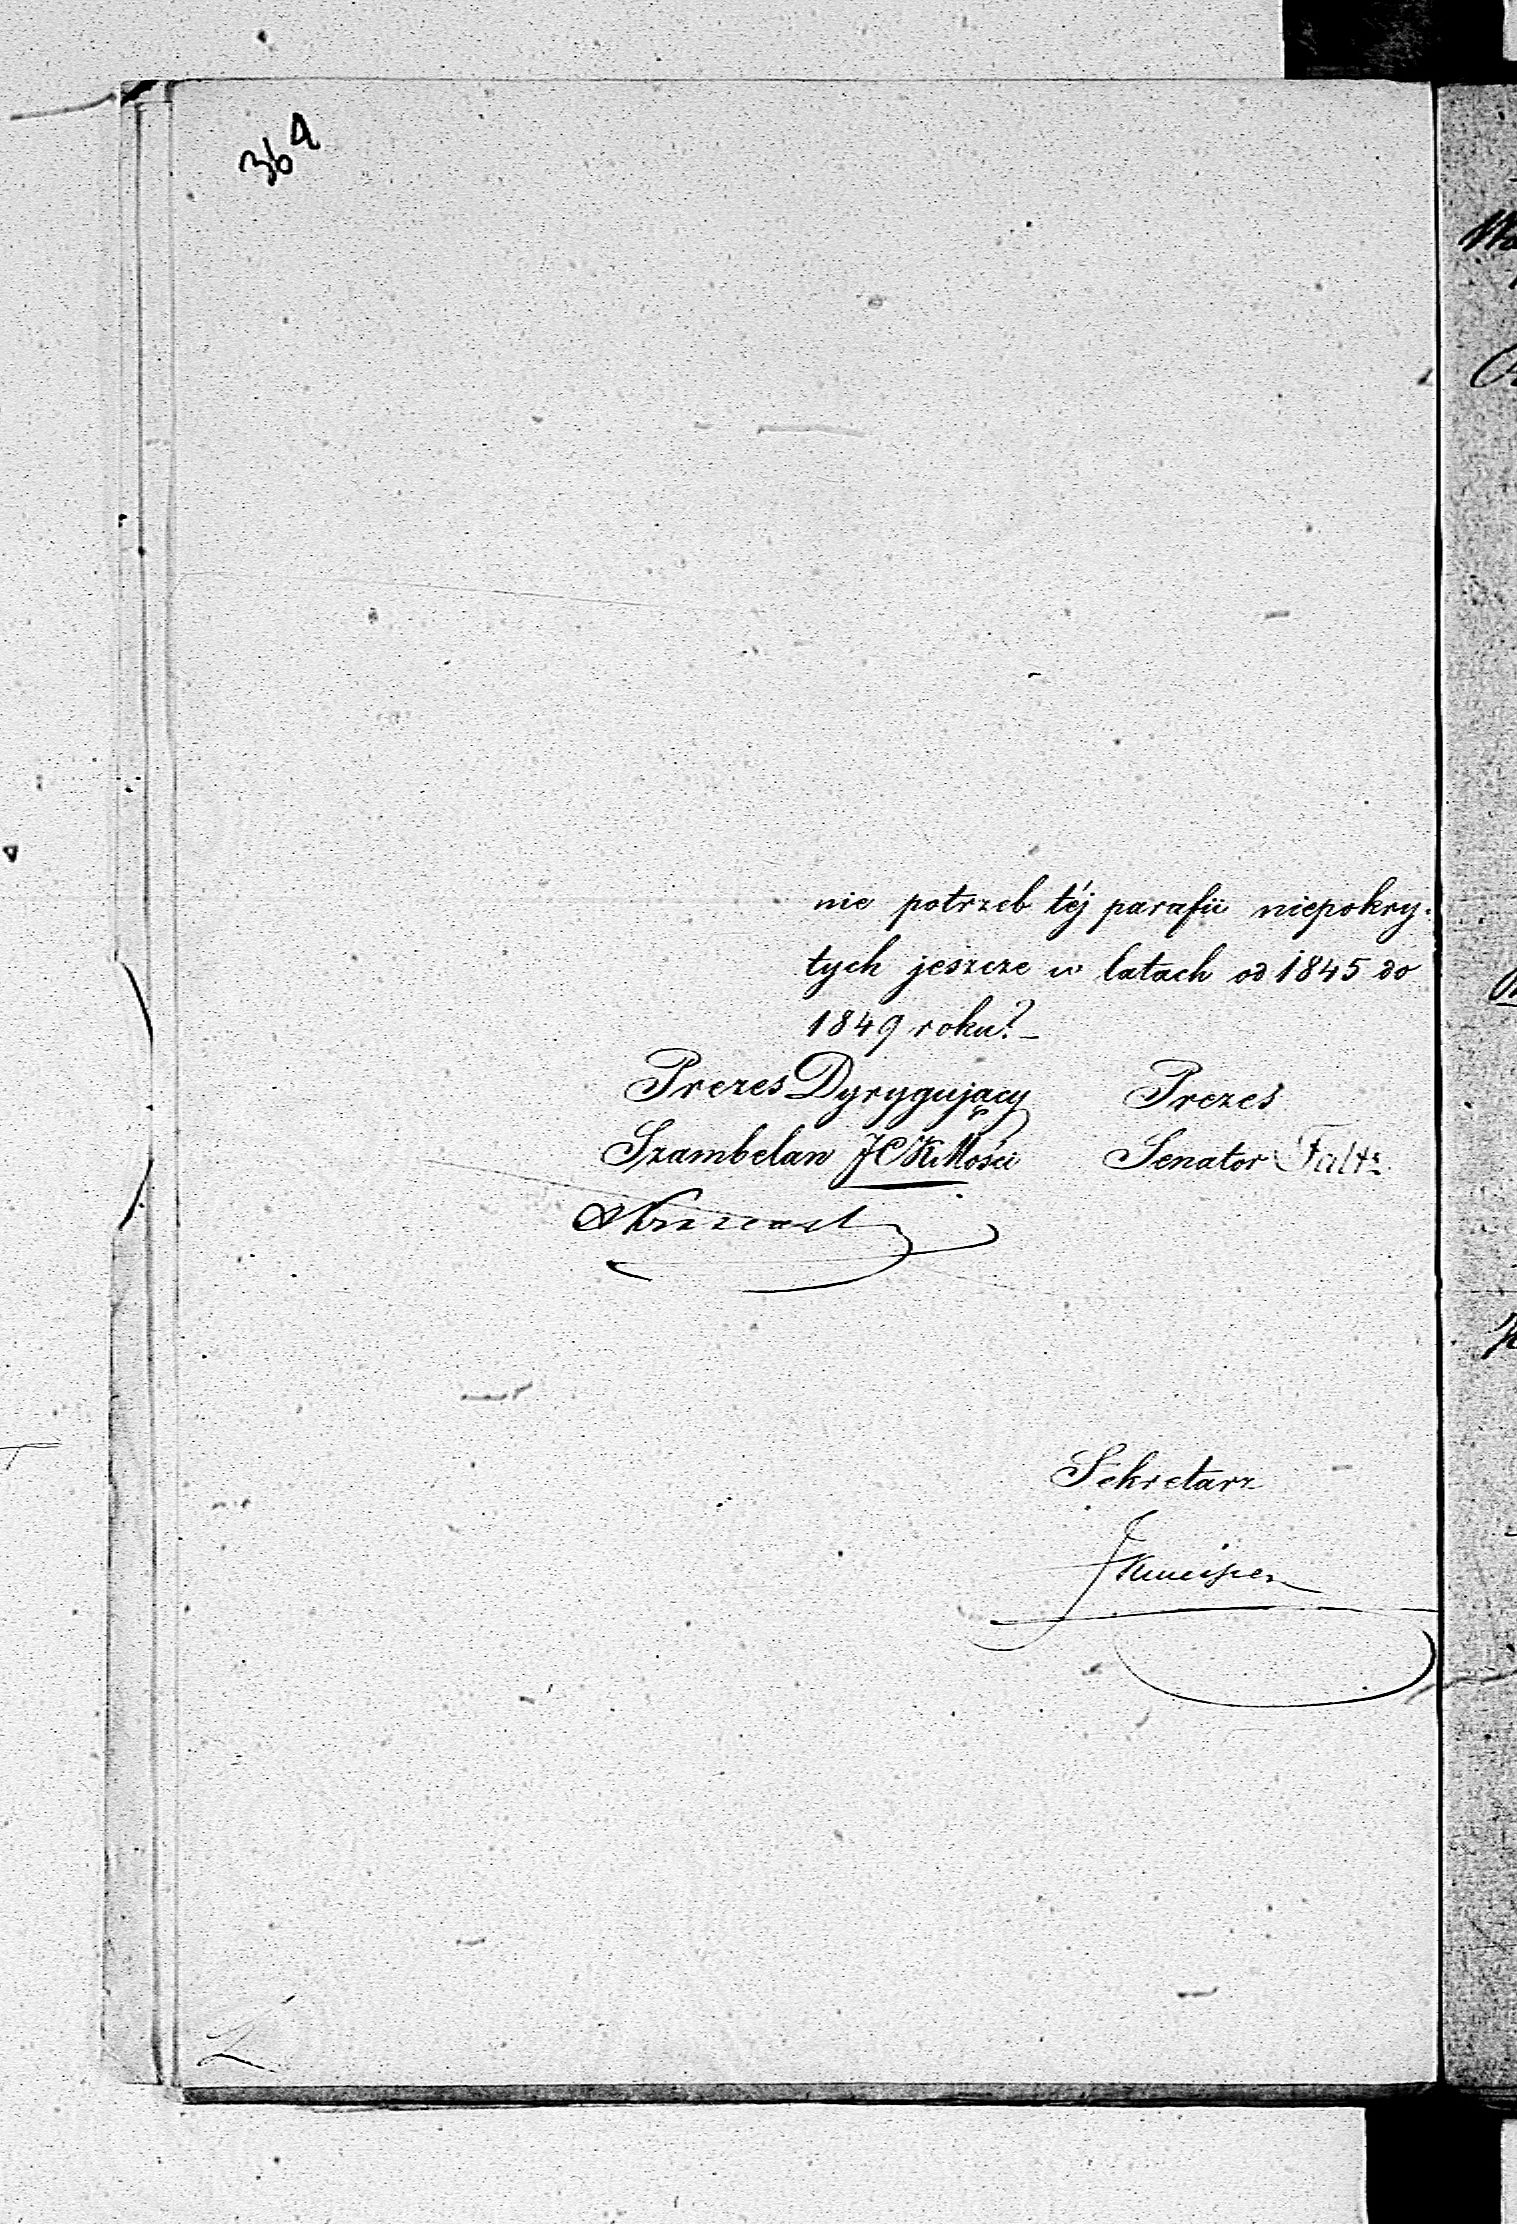 364
nie potrzeb téj parafii niepokry-
tych jeszcze w latach od 1845 do
1849 roku?
Prezes Dyrygujący Prezes
Szambelan JCKMości Senator Faltz
Sekretarz